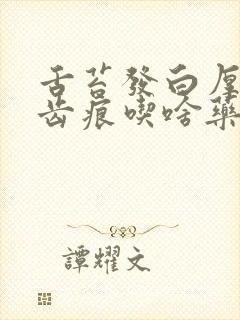 舌苔發白厚
齒痕喫啥藥
譚耀文